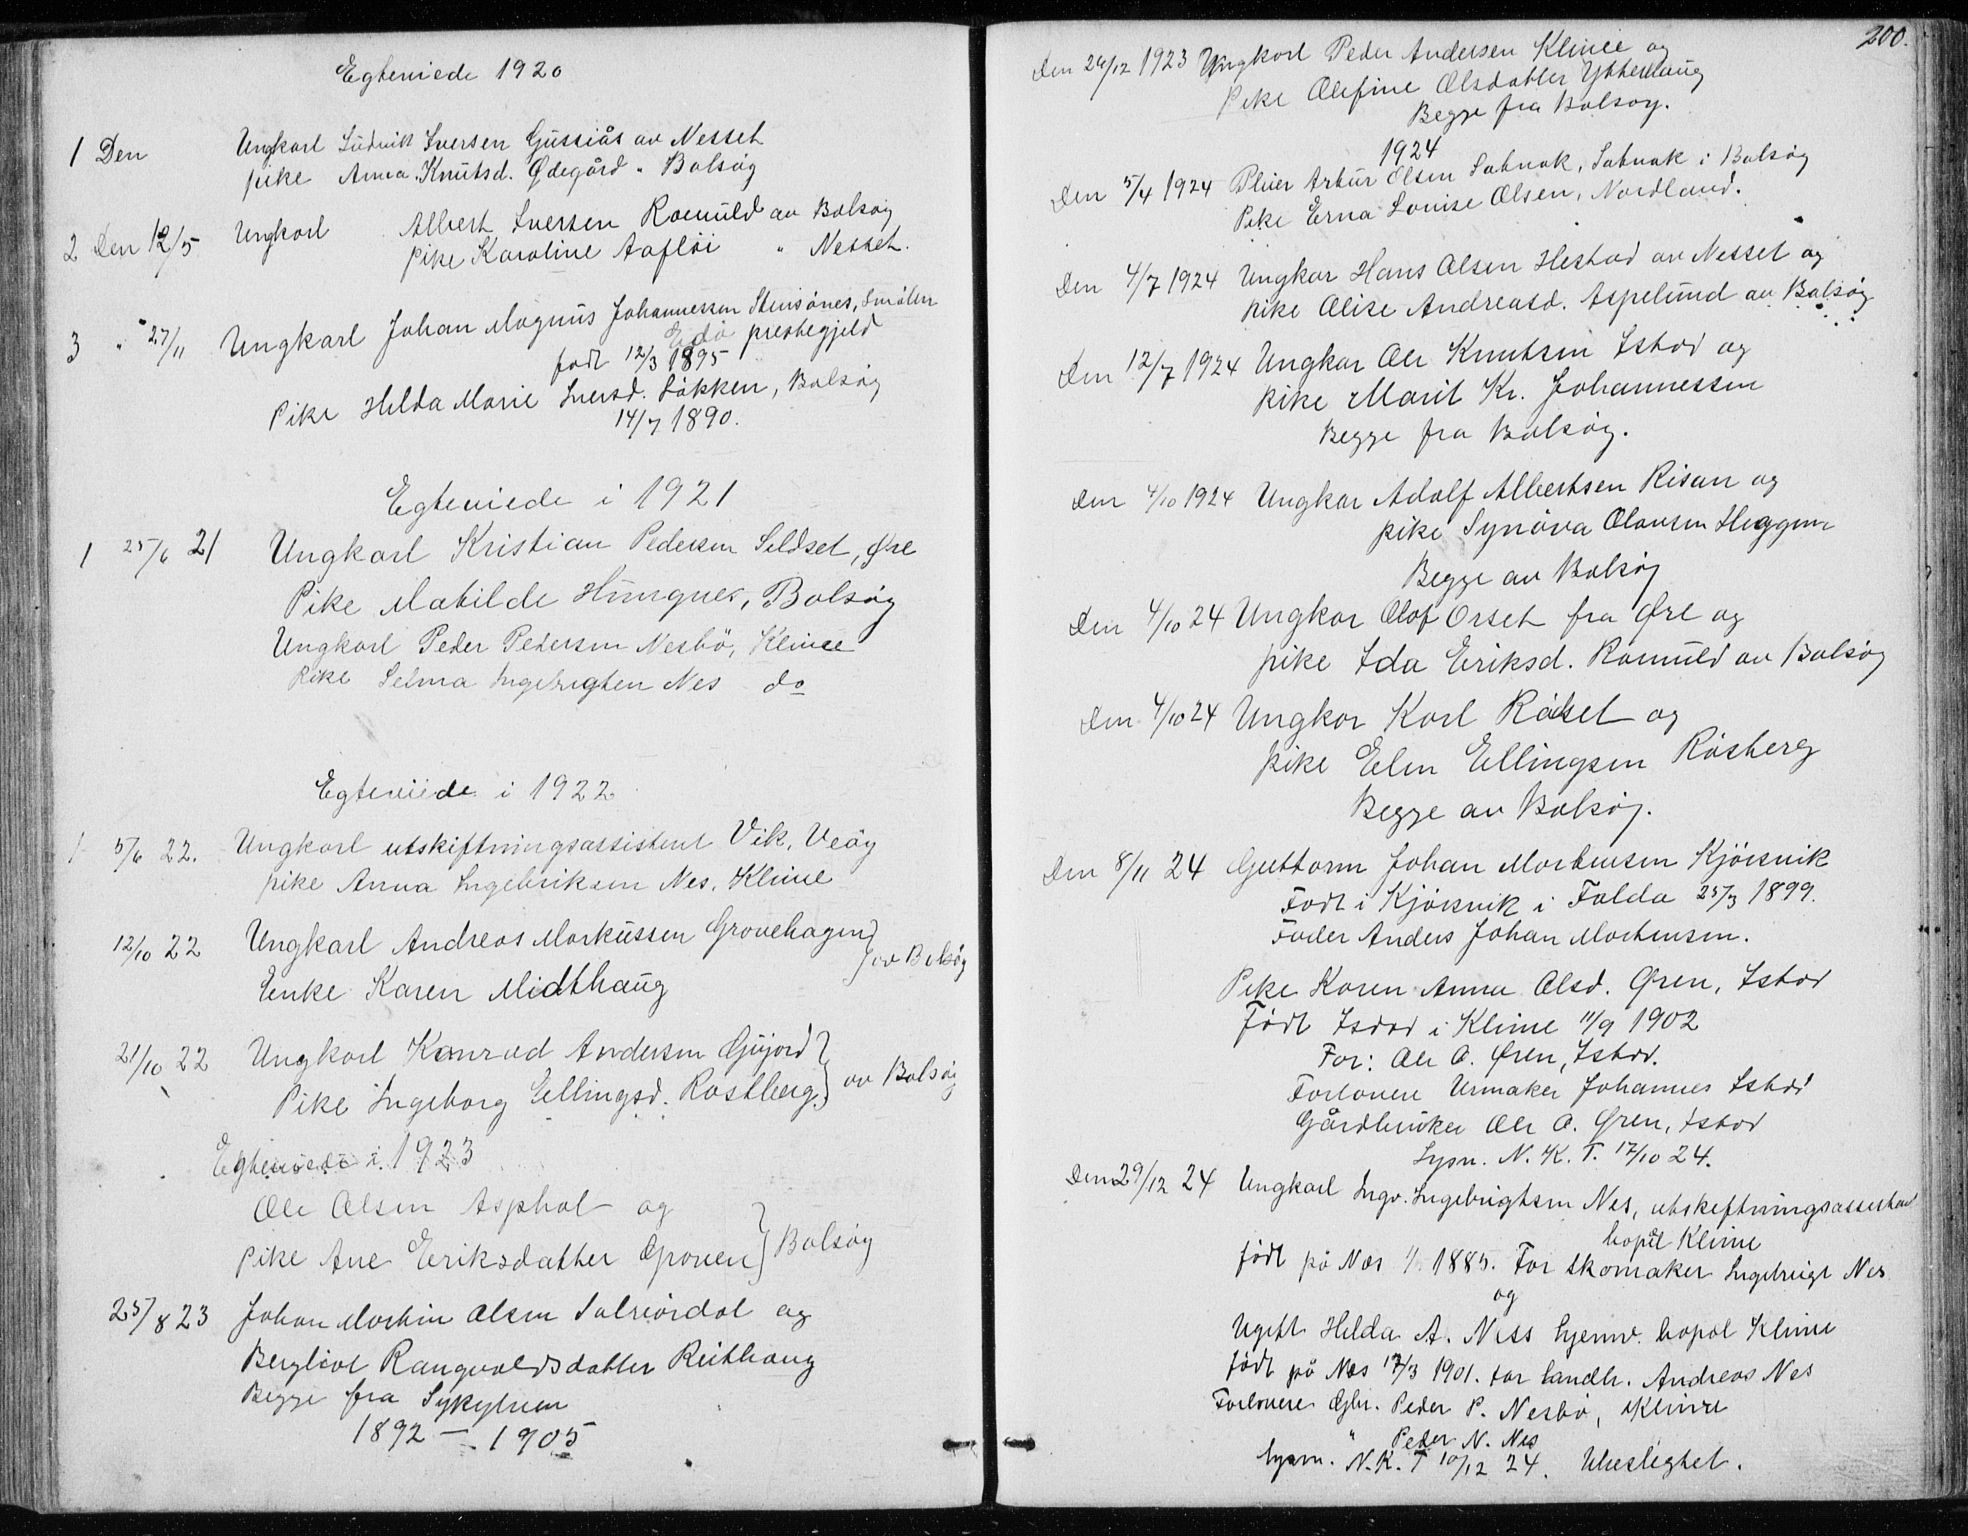 Egteviede 1920
1 Den Ungkarl Ludvik Iversen Gussiås av Nesset
pike Anna Knutsd. Ødegård " Bolsøy
2 Den 12/5 Ungkarl Albert Iversen Romuld av Bolsøy
pike Karoline Aafløi " Nesset.
3 " 27/11 Ungkarl Johan Magnus Johannessen Steinsönes, Smölen
Edö prestegjeld
født 12/3 1895
Pike Hilda Marie Iversd. Løkken, Bolsøy
14/7 1890.
Egteviede i 1921
1 25/6 21 Ungkarl Kristian Pedersen Seldset, Øre
Pike Matilde Hungnes, Bolsøy
Ungkarl Peder Pedersen Nesbö, Kleive
Pike Selma Ingebrigtsen Nes do
Egteviede i 1922
1 5/6 22. Ungkarl utskiftningsassistent Vik, Veøy
pike Anna Ingebriksen Nes, Kleive
12/10 22 Ungkarl Andreas Markussen Grovehagen
Enke Karen Midthaug } av Bolsøy
21/10 22 Ungkarl Konrad Andersen Gujord
Pike Ingeborg Ellingsd. Rostberg. } av Bolsøy
Egteviede i 1923
Ole Olsen Asphol og
pike Ane Eriksdatter Groven } Bolsøy
25/8 23 Johan Martin Olsen og
Bergliot Rangvaldsdatter Reithaug
Begge fra Sykylven
1892 — 1905
200.
Den 26/12 1923 Ungkarl Peder Andersen Kleive og
Pike Olefine Olsdatter Ytterhaug
Begge fra Bolsøy.
1924
Den 5/4 1924 Artur Olsen i Bolsøy
Pike Erna Louise Olsen, Nordland.
Den 4/7 1924 Ungkar Hans Olsen Hestad av Nesset og
pike Olise Andreasd. Aspelund av Bolsøy
Den 12/7 1924 Ungkar Ole Knutsen Istad og
pike Marit Kr. Johannessen
Begge fra Bolsøy.
Den 4/10 1924 Ungkar Adolf Albertsen Risan og
pike Synöva Olausen Heggem
Begge av Bolsøy
Den 4/10 24 Ungkar Olof Orset fra Øre og
pike Ida Eriksd. Romuld av Bolsøy
Den 4/10 24 Ungkar Karl Röset og
pike Elen Ellingsen Rösberg
Begge av Bolsøy.
Den 8/11 24 Guttorm Johan Mortensen Kjörsvik
Født i Kjörsvik i Folda 25/3 1899.
Fader Anders Johan Mortensen.
Pike Karen Anna Olsd. Øren, Istad
Født Istad i Kleive 11/9 1902
Far: Ole O. Øren, Istad.
Forlovere Urmaker Johannes Istad
Gårdbruker Ole O. Øren, Istad
Lysn. N. K. T. 17/10 24.
Den 29/12 24 Ungkarl Ingv. Ingebrigtsen Nes, utskiftningsassistent
bopæl Kleive
født på Nes 1885. Far skomaker Ingebrigt Nes
og
Ugift Hilda A. Ness hjemv. bopæl Kleive
født på Nes 17/3 1901. Far landh. Andreas Nes
Forlovere Gbr. Peder P. Nesbö, Kleive
" Peder N. Nes
Lysn. N. K. T 10/12 24. Uteslegtet.